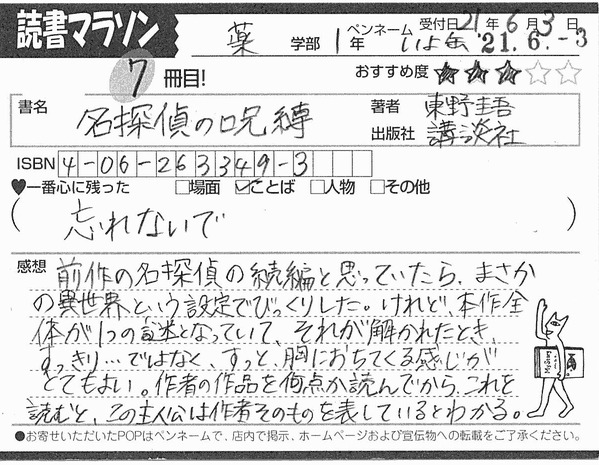 読書マラソン
薬 学部 1年 ペンネーム いよ缶 受付日 21年 6月 3日
'21.6.-3
7 冊目! おすすめ度 ★★★☆☆
書名 名探偵の呪縛 著者 東野圭吾
出版社 講談社
ISBN 4-06-263349-3
♥一番心に残った □場面 ☑ことば □人物 □その他
( 忘れないで )
感想 前作の名探偵の続編と思っていたら、まさか
の異世界という設定でびっくりした。けれど、本作全
体が1つの謎となっていて、それが解かれたとき、
すっきり…ではなく、すっと、胸におちてくる感じが
とてもよい。作者の作品を何点か読んでから、これを
読むと、この主人公は作者そのものを表しているとわかる。
●お寄せいただいたPOPはペンネームで、店内で掲示、ホームページおよび宣伝物への転載をご了承ください。